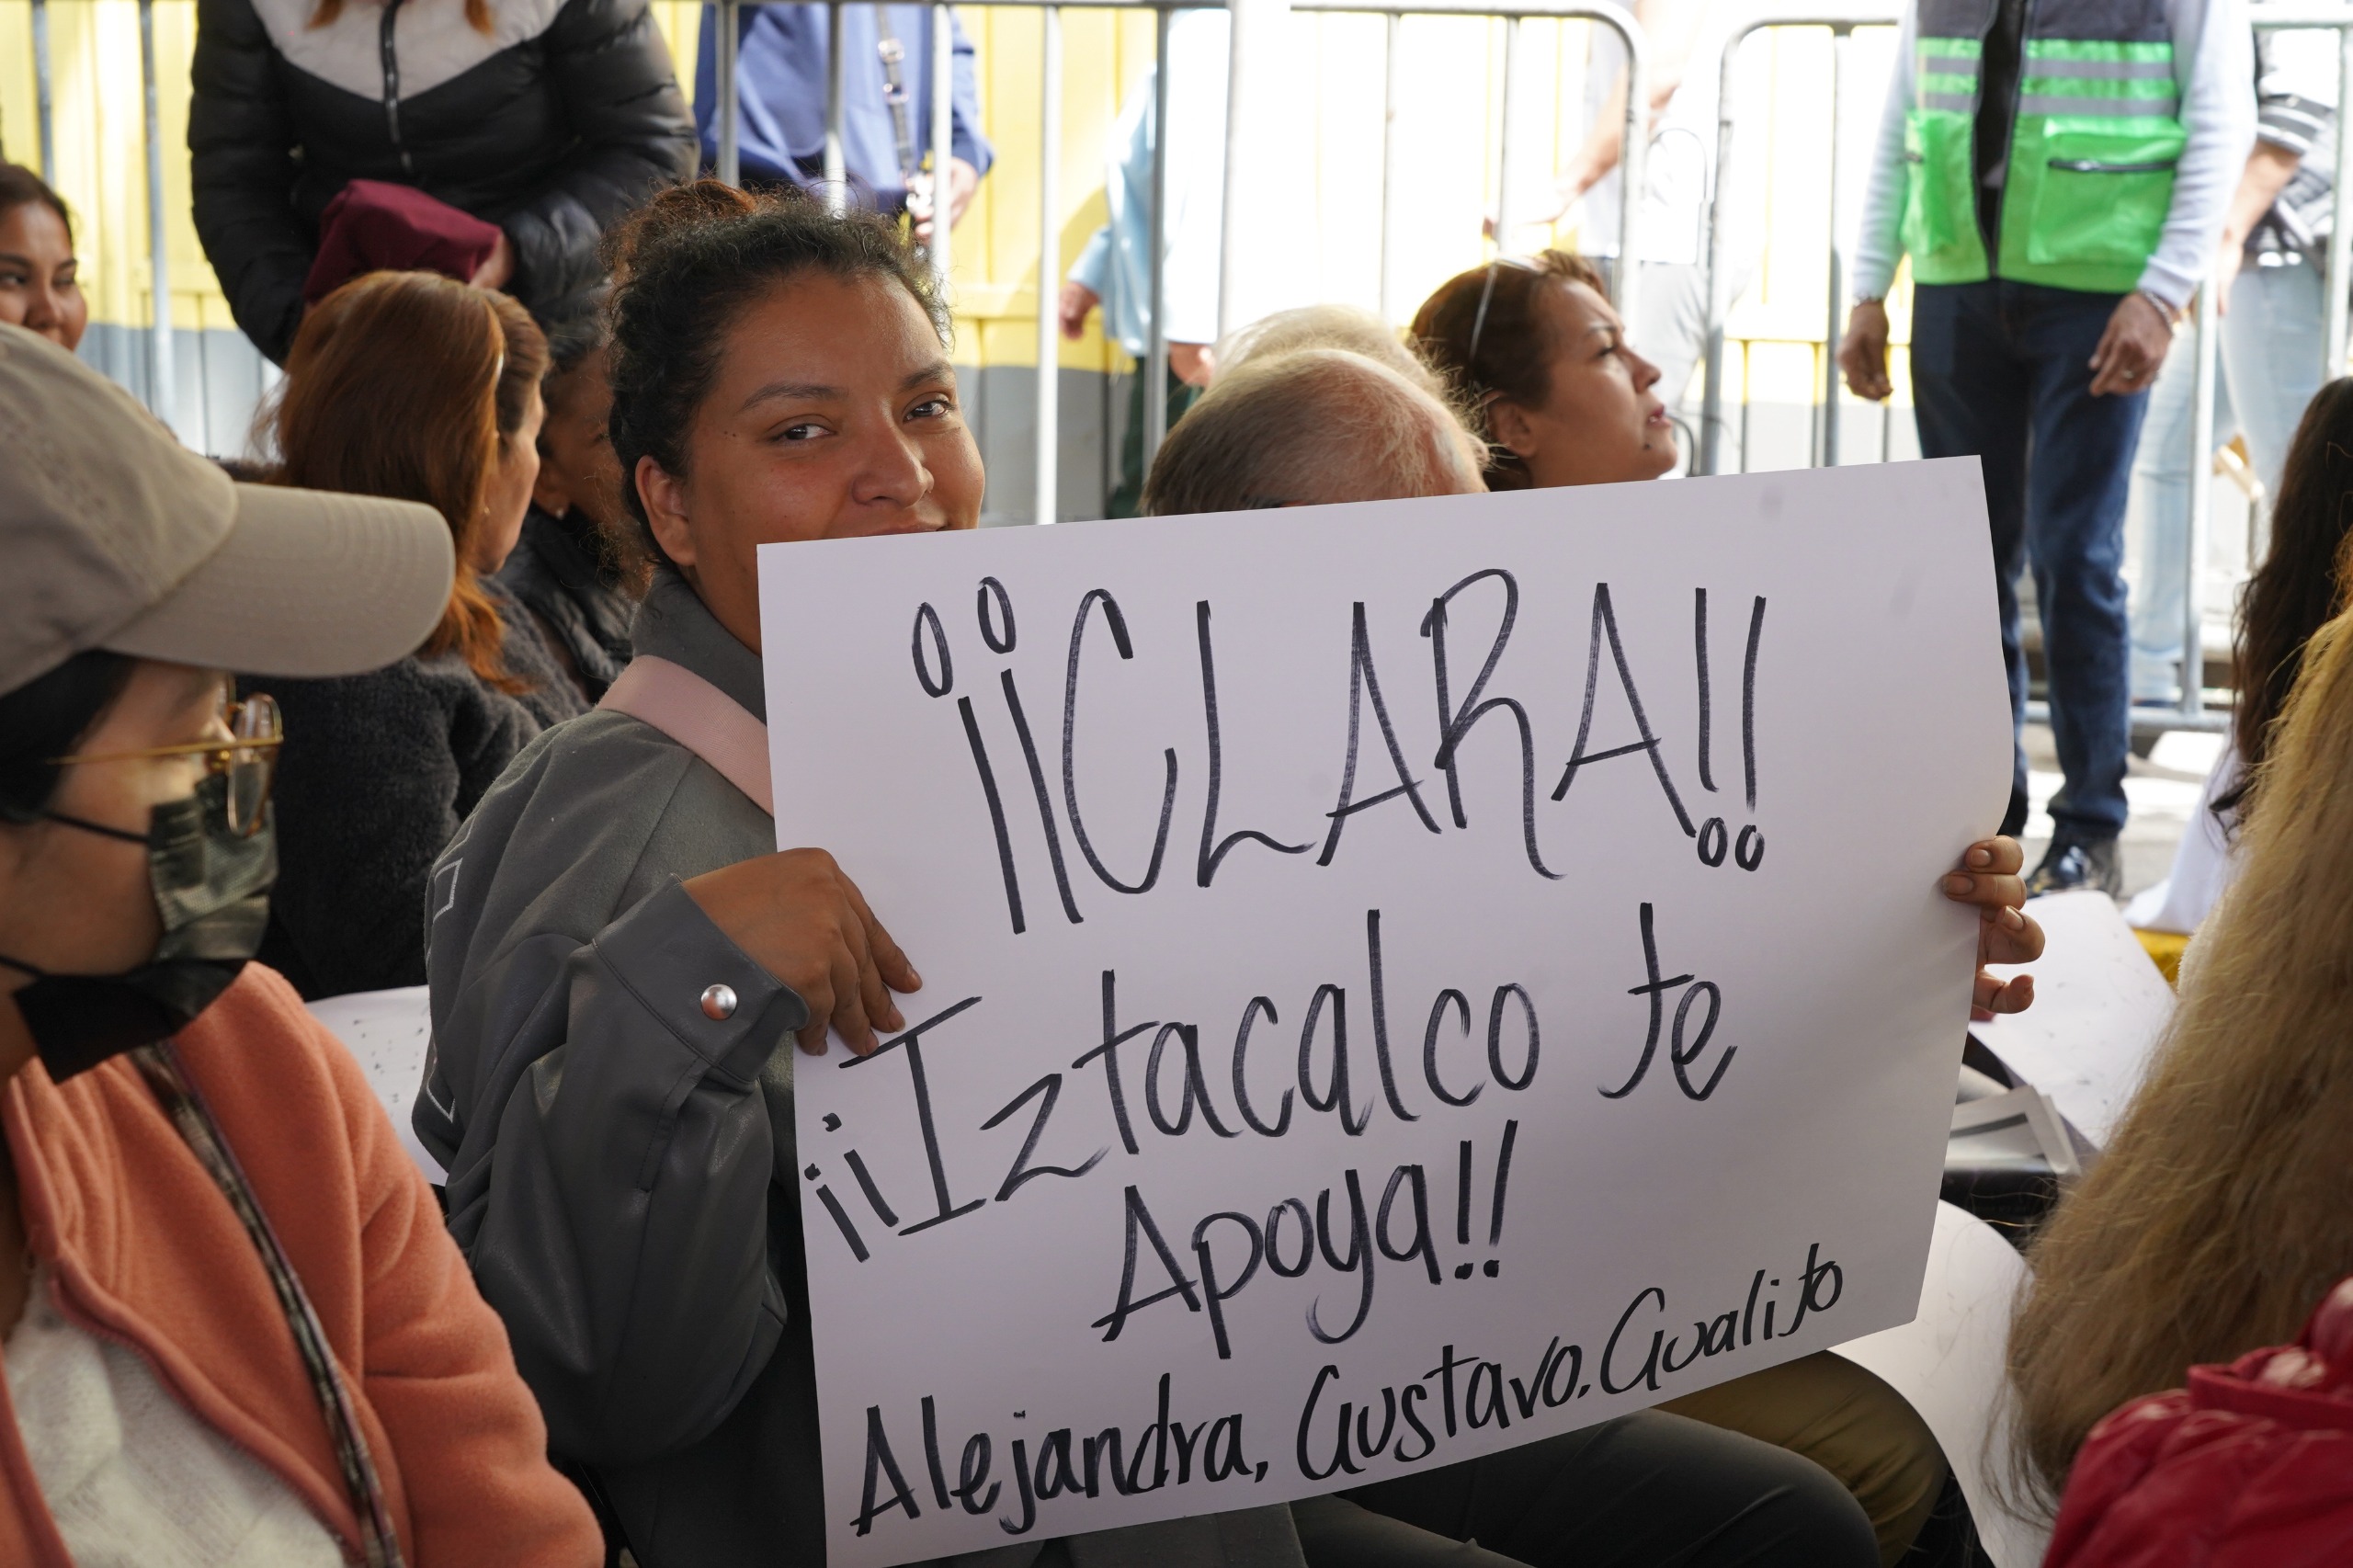 ¡¡CLARA!!
¡¡Iztacalco te
Apoya!!
Alejandra, Gustavo. Gualito